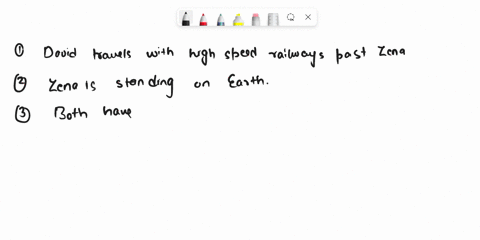 ① David travels with high speed railways past Zena
② Zena is standing on Earth.
③ Both have